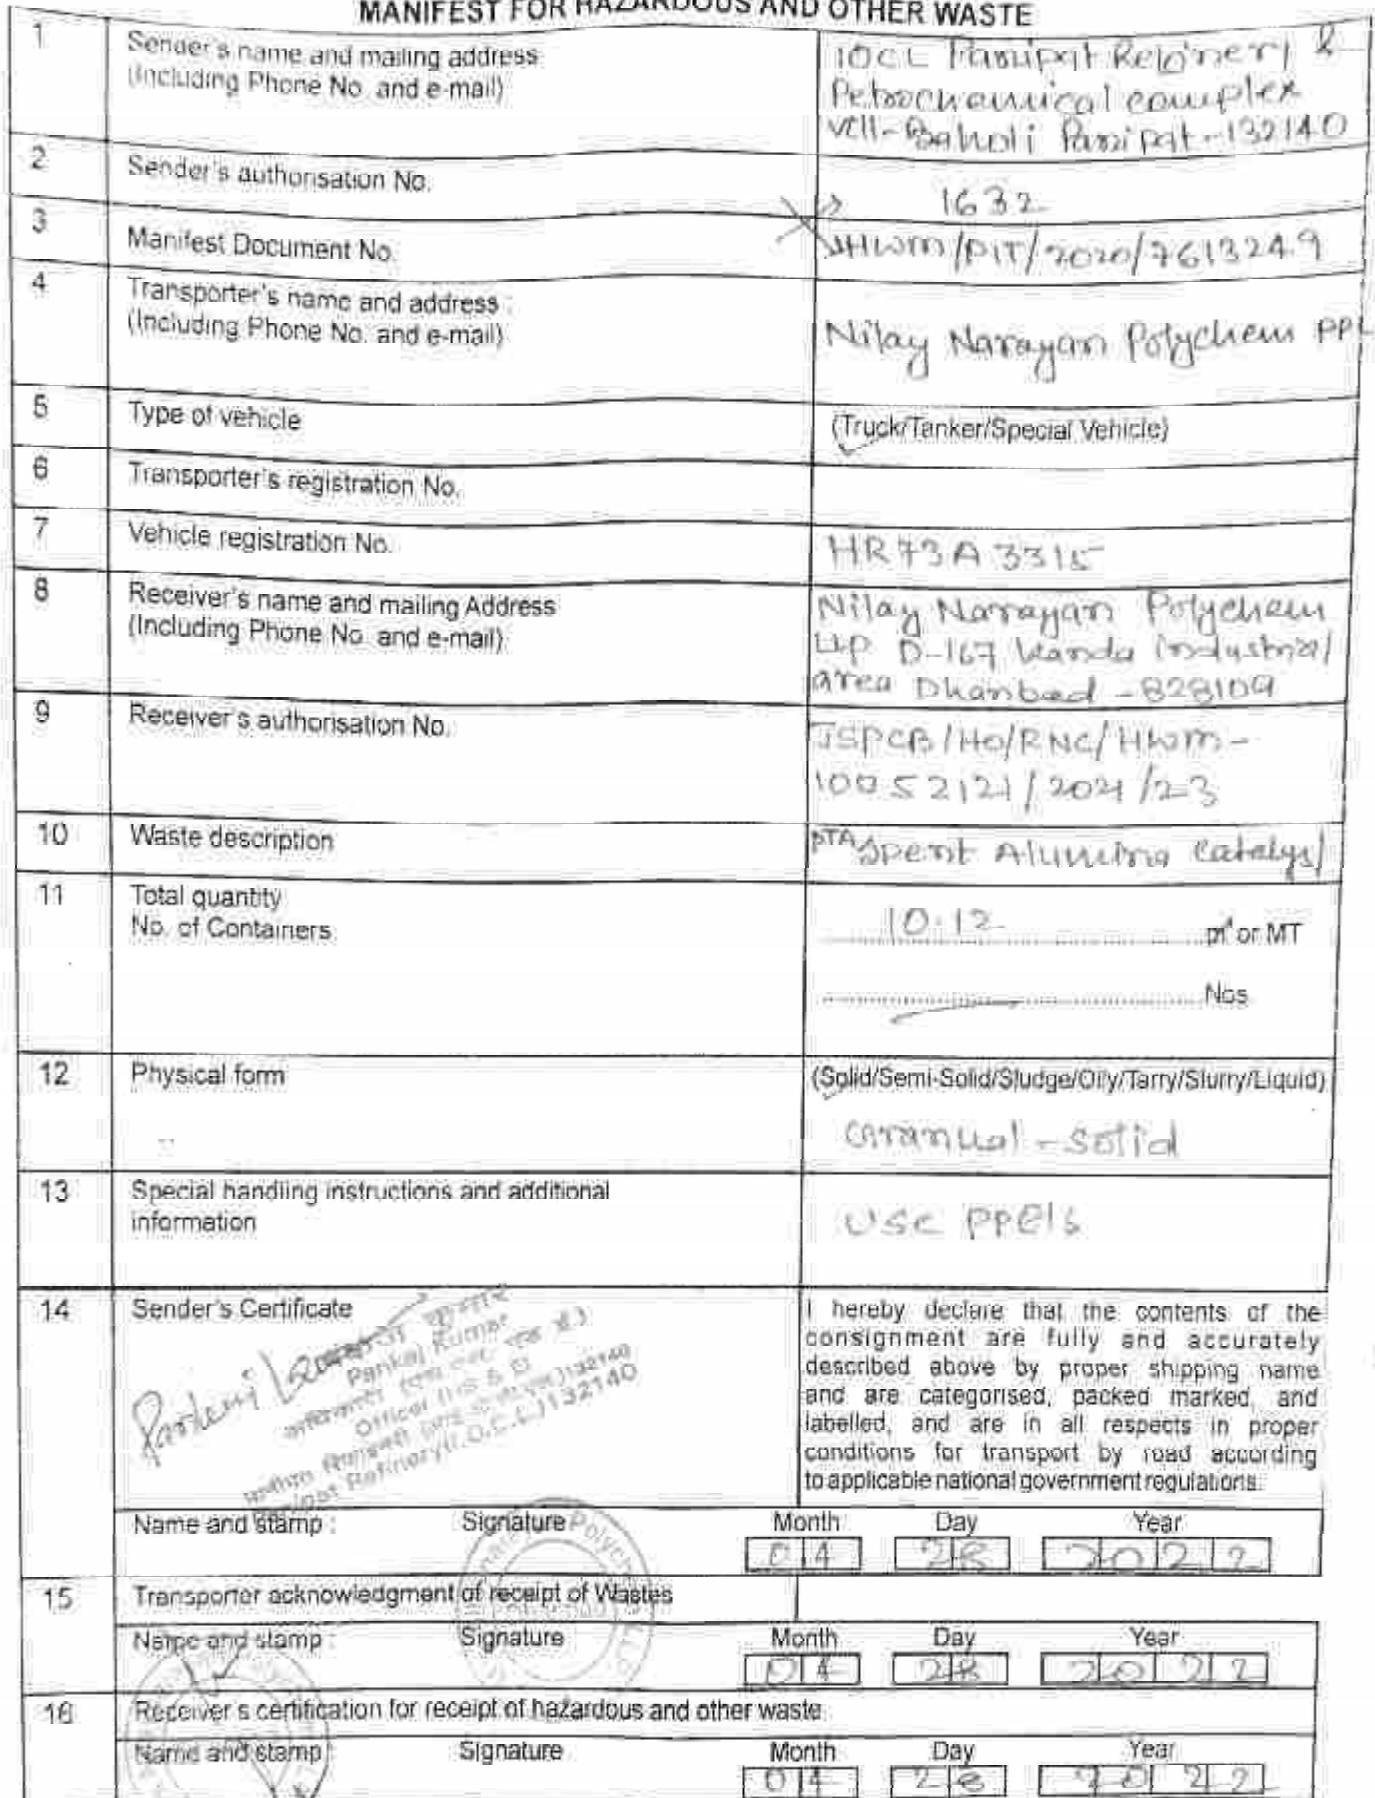 MANIFEST FOR HAZARDOUS AND OTHER WASTE
1 Sender's name and mailing address
(Including Phone No. and e-mail)
IOCL Panipat Refinery &
Petrochemical complex
vill-Baholi Panipat-132140
2 Sender's authorisation No.
1632
3 Manifest Document No.
HWM/PIT/2020/7613249
4 Transporter's name and address :
(Including Phone No. and e-mail)
Nilay Narayan Polychem PPL
5 Type of vehicle (Truck/Tanker/Special Vehicle)
6 Transporter's registration No.
7 Vehicle registration No. HR73A 3315
8 Receiver's name and mailing Address
(Including Phone No. and e-mail)
Nilay Narayan Polychem
LLP D-167 Kandra Industrial
area Dhanbad -828109
9 Receiver's authorisation No.
JSPCB/HO/RNC/HWM-
10052121/2021/23
10 Waste description PTA Spent Alumina Catalyst
11 Total quantity
No. of Containers
10.12 m³ or MT
Nos
12 Physical form (Solid/Semi-Solid/Sludge/Oily/Tarry/Slurry/Liquid)
Granual - Solid
13 Special handling instructions and additional
information
Use PPE's
14 Sender's Certificate
Pankaj Kumar
Officer (H S & E)
Panipat Refinery(I.O.C.L.)132140
I hereby declare that the contents of the
consignment are fully and accurately
described above by proper shipping name
and are categorised, packed marked, and
labelled, and are in all respects in proper
conditions for transport by road according
to applicable national government regulations.
Name and stamp : Signature Month Day Year
04 28 2022
15 Transporter acknowledgment of receipt of Wastes
Name and stamp : Signature Month Day Year
04 28 2022
16 Receiver's certification for receipt of hazardous and other waste
Name and stamp Signature Month Day Year
04 28 2022